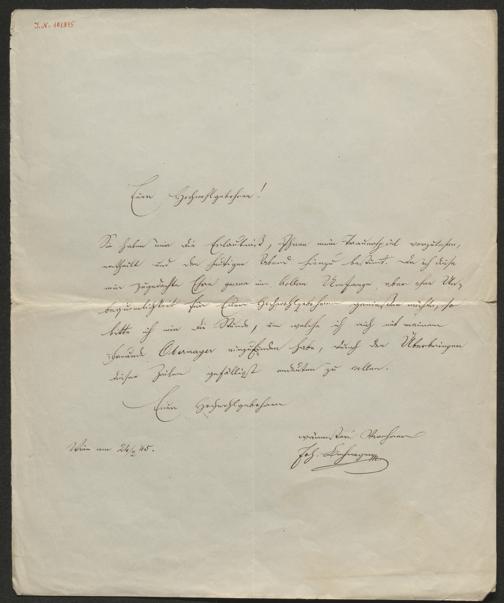 J.N. 101895
Euer Hochwohlgebohren!
Sie haben mir die Erlaubniß, Ihnen mein Trauerspiel vorzulesen,
ertheilt und den heutigen Abend hiezu bestimt. Da ich diese
mir zugedachte Ehre gerne im vollen Umfange aber ohne Un-
bequemlichkeit für Euer Hochwohlgebohren genießen möchte, so
bitte ich mir die Stunde, in welcher ich mich mit meinem
Freunde Obermayer einzufinden habe, durch den Überbringer
dieser Zeilen gefälligst andeuten zu wollen.
Euer Hochwohlgebohren
Wien am 26/2 45.
wärmster Verehrer
Joh.